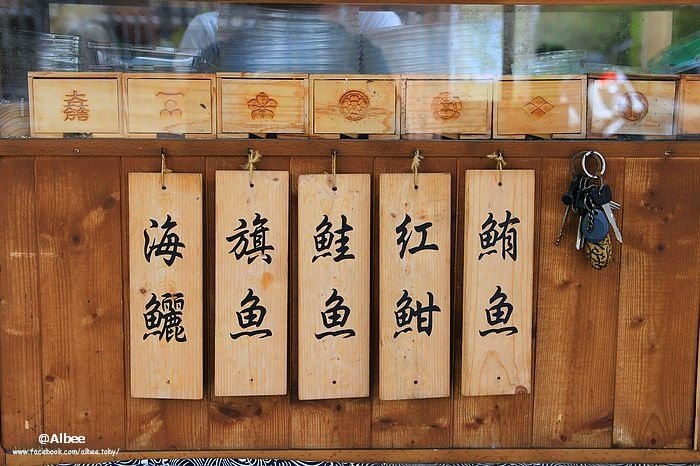 海鱺
旗魚
鮭魚
紅魽
鮪魚
@Albee
www.facebook.com/albee.toby/